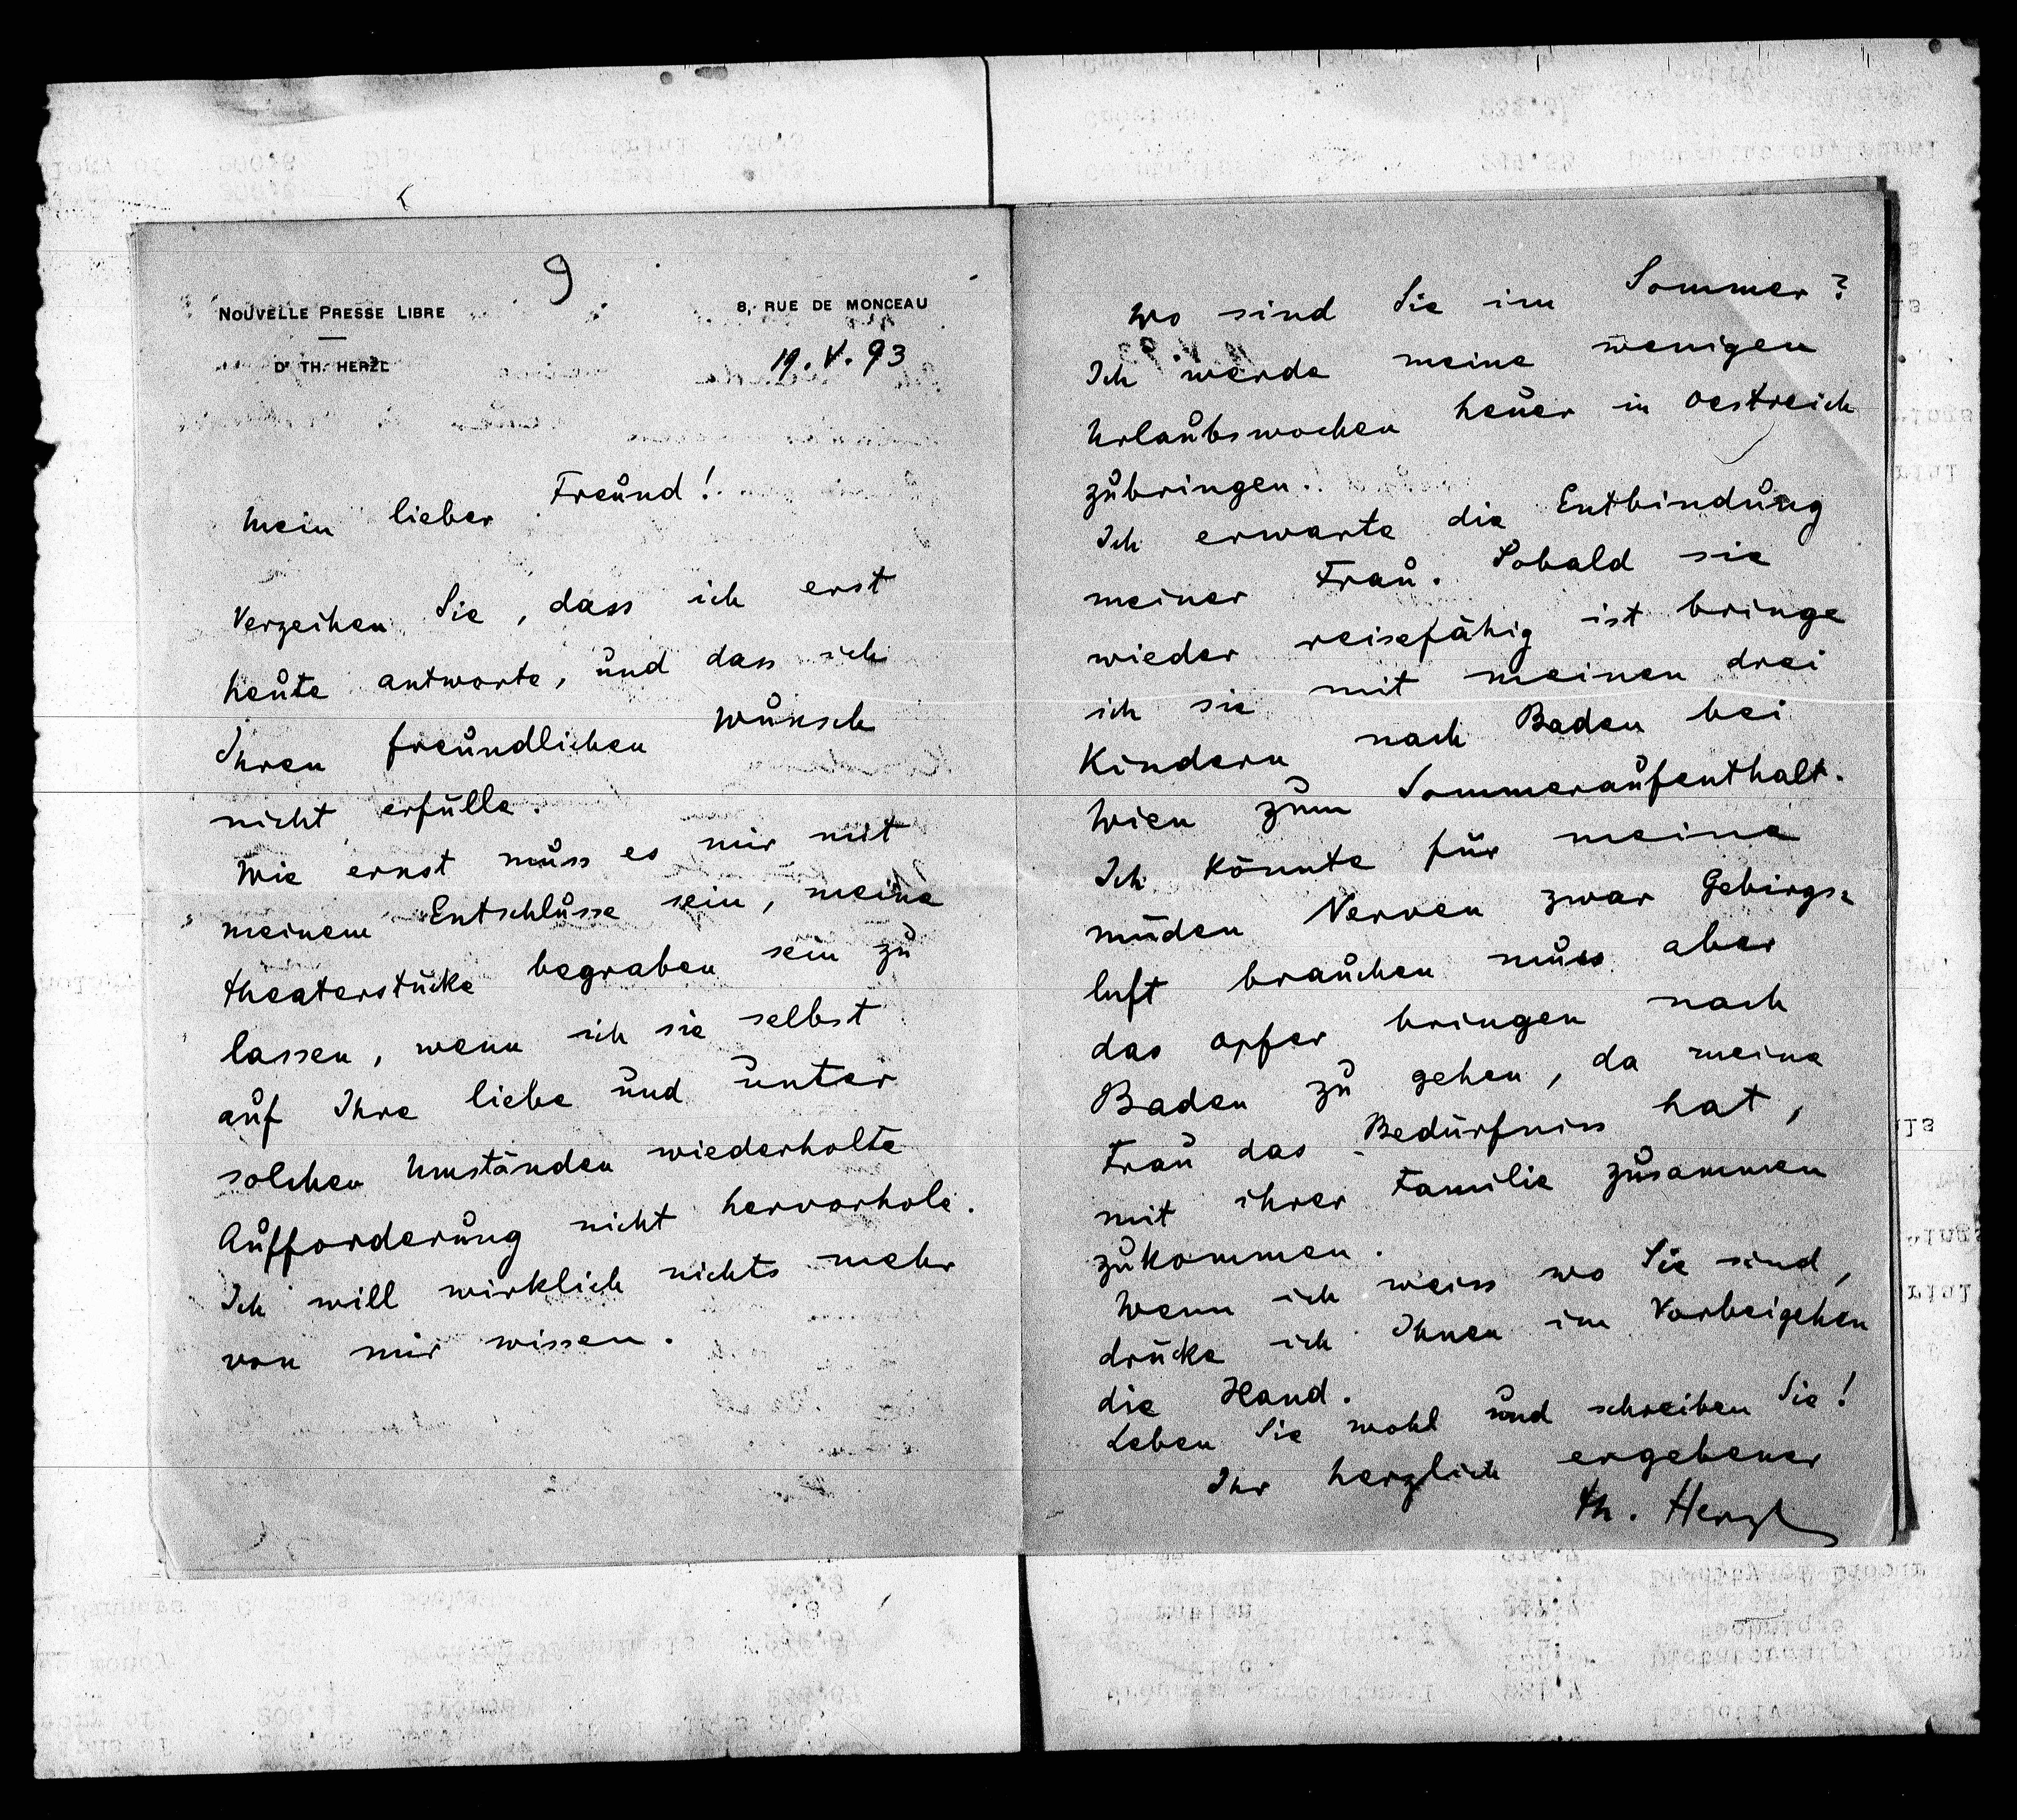 9
NOUVELLE PRESSE LIBRE
8, RUE DE MONCEAU
Dr TH. HERZL
19. V. 93
Mein lieber Freund!
Verzeihen Sie, dass ich erst
heute antworte, und dass ich
Ihren freundlichen Wunsch
nicht erfülle.
Wie ernst muss es mir mit
meinem Entschlusse sein, meine
Theaterstücke begraben sein zu
lassen, wenn ich sie selbst
auf Ihre liebe und unter
solchen Umständen wiederholte
Aufforderung nicht hervorhole.
Ich will wirklich nichts mehr
von mir wissen.
Wo sind Sie im Sommer?
Ich werde meine wenigen
Urlaubswochen heuer in Oestreich
zubringen.
Ich erwarte die Entbindung
meiner Frau. Sobald sie
wieder reisefähig ist bringe
ich sie mit meinen drei
Kindern nach Baden bei
Wien zum Sommeraufenthalt.
Ich könnte für meine
müden Nerven zwar Gebirgs-
luft brauchen muss aber
das Opfer bringen nach
Baden zu gehen, da meine
Frau das Bedürfniss hat,
mit ihrer Familie zusammen
zukommen.
Wenn ich weiss wo Sie sind,
drücke ich Ihnen im Vorbeigehen
die Hand.
Leben Sie wohl und schreiben Sie!
Ihr herzlich ergebener
Th. Herzl